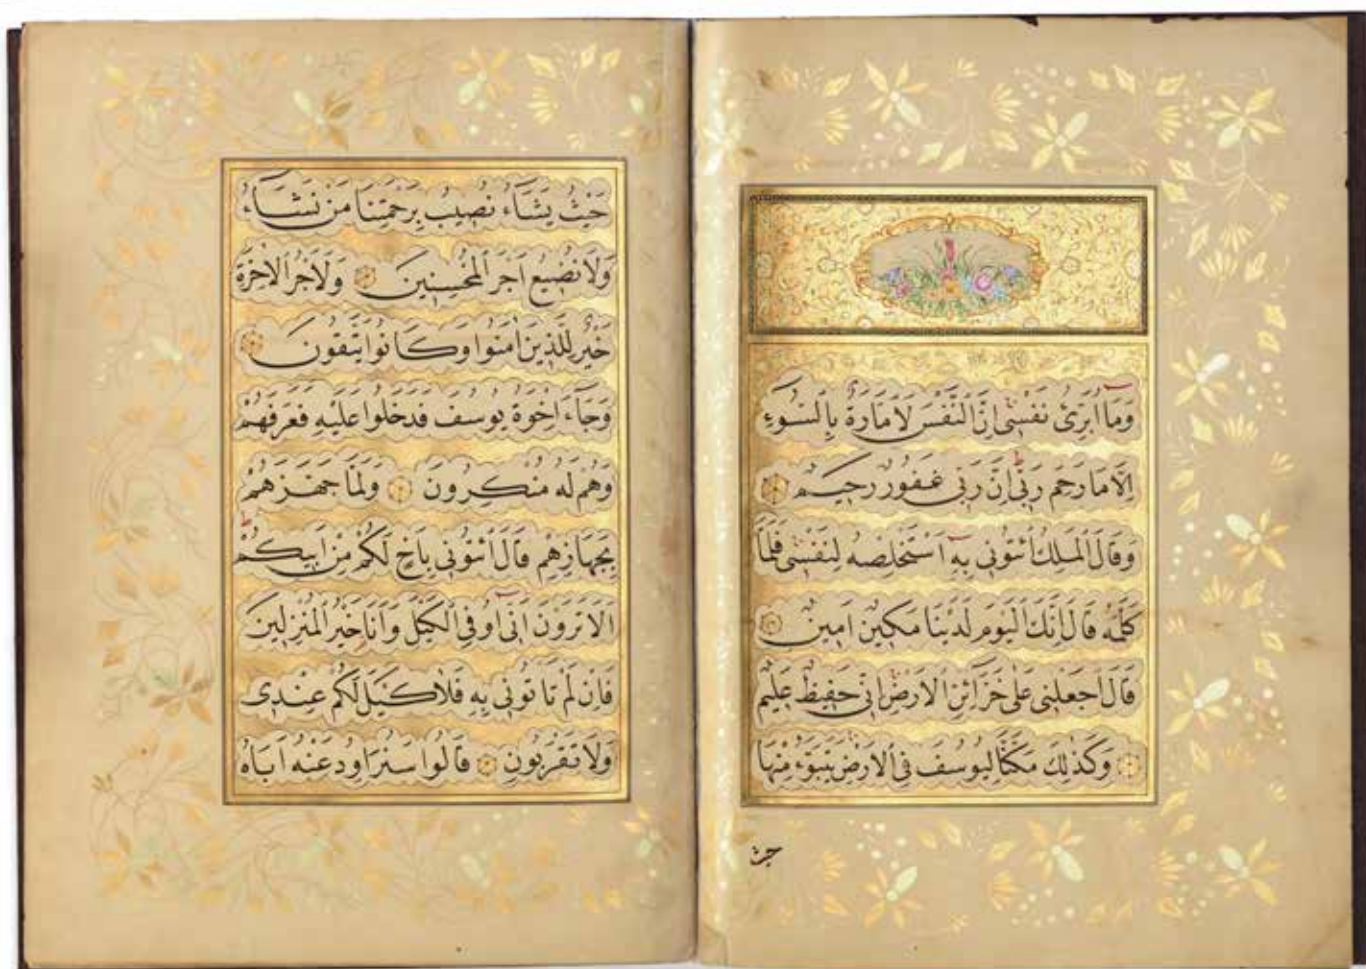 وَمَا اُبَرِّئُ نَفْسِى اِنَّ النَّفْسَ لَاَمَّارَةٌ بِالسُّوءِ
اِلَّا مَا رَحِمَ رَبِّى اِنَّ رَبِّى غَفُورٌ رَحِيمٌ
وَقَالَ الْمَلِكُ ائْتُونِى بِهِ اَسْتَخْلِصْهُ لِنَفْسِى فَلَمَّا
كَلَّمَهُ قَالَ اِنَّكَ الْيَوْمَ لَدَيْنَا مَكِينٌ اَمِينٌ
قَالَ اجْعَلْنِى عَلٰى خَزَائِنِ الْاَرْضِ اِنِّى حَفِيظٌ عَلِيمٌ
وَكَذٰلِكَ مَكَّنَّا لِيُوسُفَ فِى الْاَرْضِ يَتَبَوَّءُ مِنْهَا
حيث
حَيْثُ يَشَاءُ نُصِيبُ بِرَحْمَتِنَا مَنْ نَشَاءُ
وَلَا نُضِيعُ اَجْرَ الْمُحْسِنِينَ وَلَاَجْرُ الْاٰخِرَةِ
خَيْرٌ لِلَّذِينَ اٰمَنُوا وَكَانُوا يَتَّقُونَ
وَجَاءَ اِخْوَةُ يُوسُفَ فَدَخَلُوا عَلَيْهِ فَعَرَفَهُمْ
وَهُمْ لَهُ مُنْكِرُونَ وَلَمَّا جَهَّزَهُمْ
بِجَهَازِهِمْ قَالَ ائْتُونِى بِاَخٍ لَكُمْ مِنْ اَبِيكُمْ
اَلَا تَرَوْنَ اَنِّى اُوفِى الْكَيْلَ وَاَنَا خَيْرُ الْمُنْزِلِينَ
فَاِنْ لَمْ تَاْتُونِى بِهِ فَلَا كَيْلَ لَكُمْ عِنْدِى
وَلَا تَقْرَبُونِ قَالُوا سَنُرَاوِدُ عَنْهُ اَبَاهُ